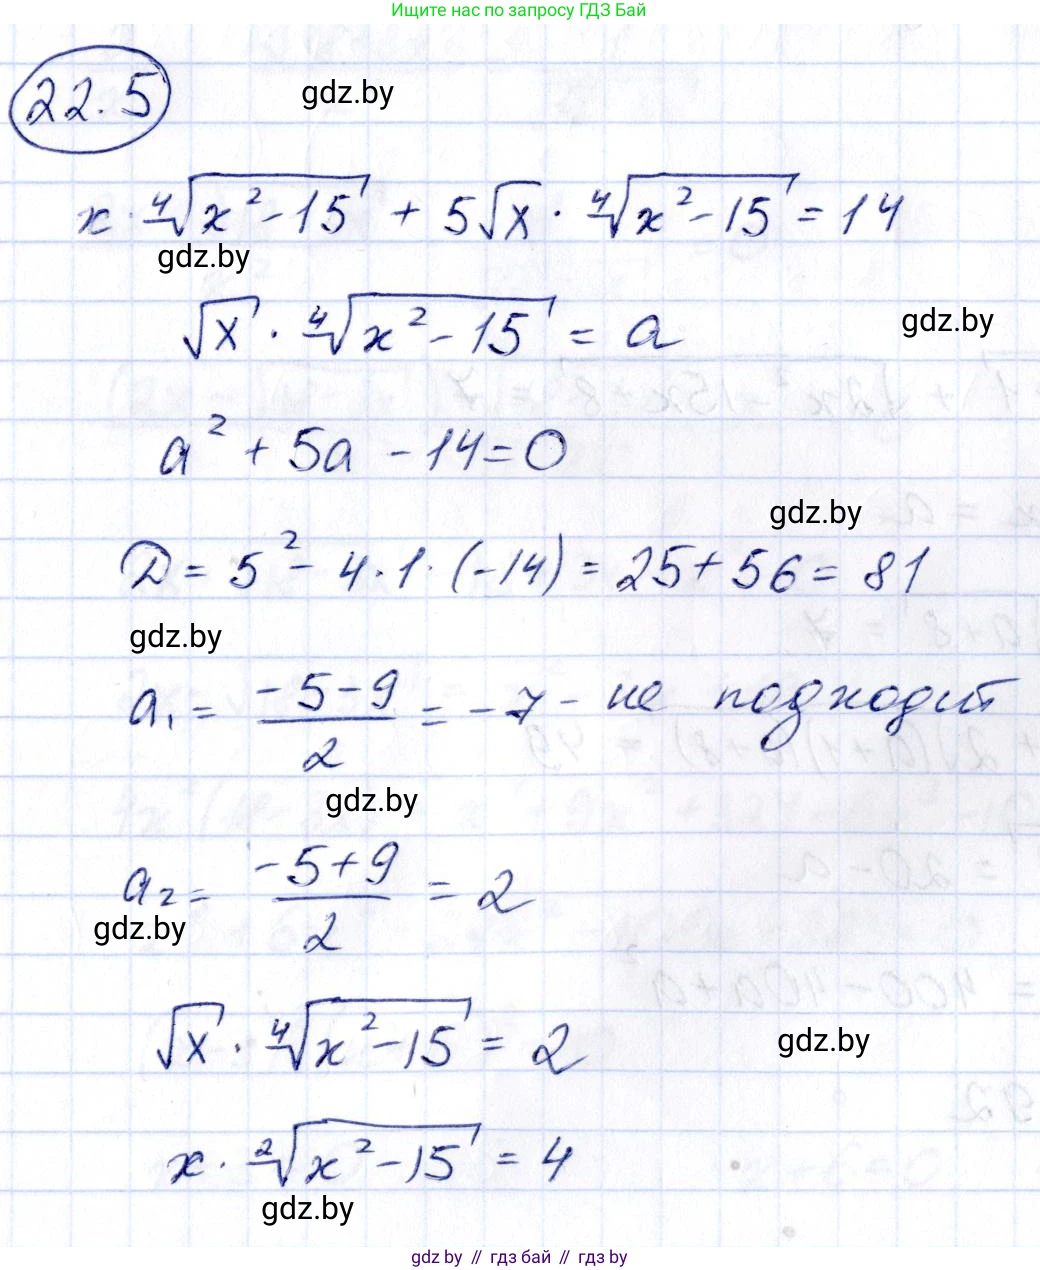 Ищите нас по запросу ГДЗ Бай
22.5
gdz.by
x · ⁴√(x² - 15) + 5√x · ⁴√(x² - 15) = 14
gdz.by
√x · ⁴√(x² - 15) = a
gdz.by
a² + 5a - 14 = 0
gdz.by
D = 5² - 4 · 1 · (-14) = 25 + 56 = 81
gdz.by
a₁ = (-5 - 9)/2 = -7 - не подходит
gdz.by
a₂ = (-5 + 9)/2 = 2
gdz.by
√x · ⁴√(x² - 15) = 2
gdz.by
x · ²√(x² - 15) = 4
gdz.by
gdz by // гдз бай // gdz by